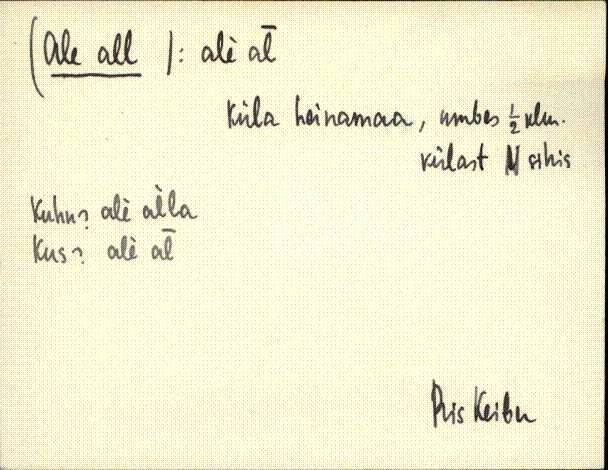 (Ale all): alè al̄
küla heinamaa, umbes ½ klm.
külast N sihis
Kuhu? alè àlla
Kus? alè al̄
Priis Keibu